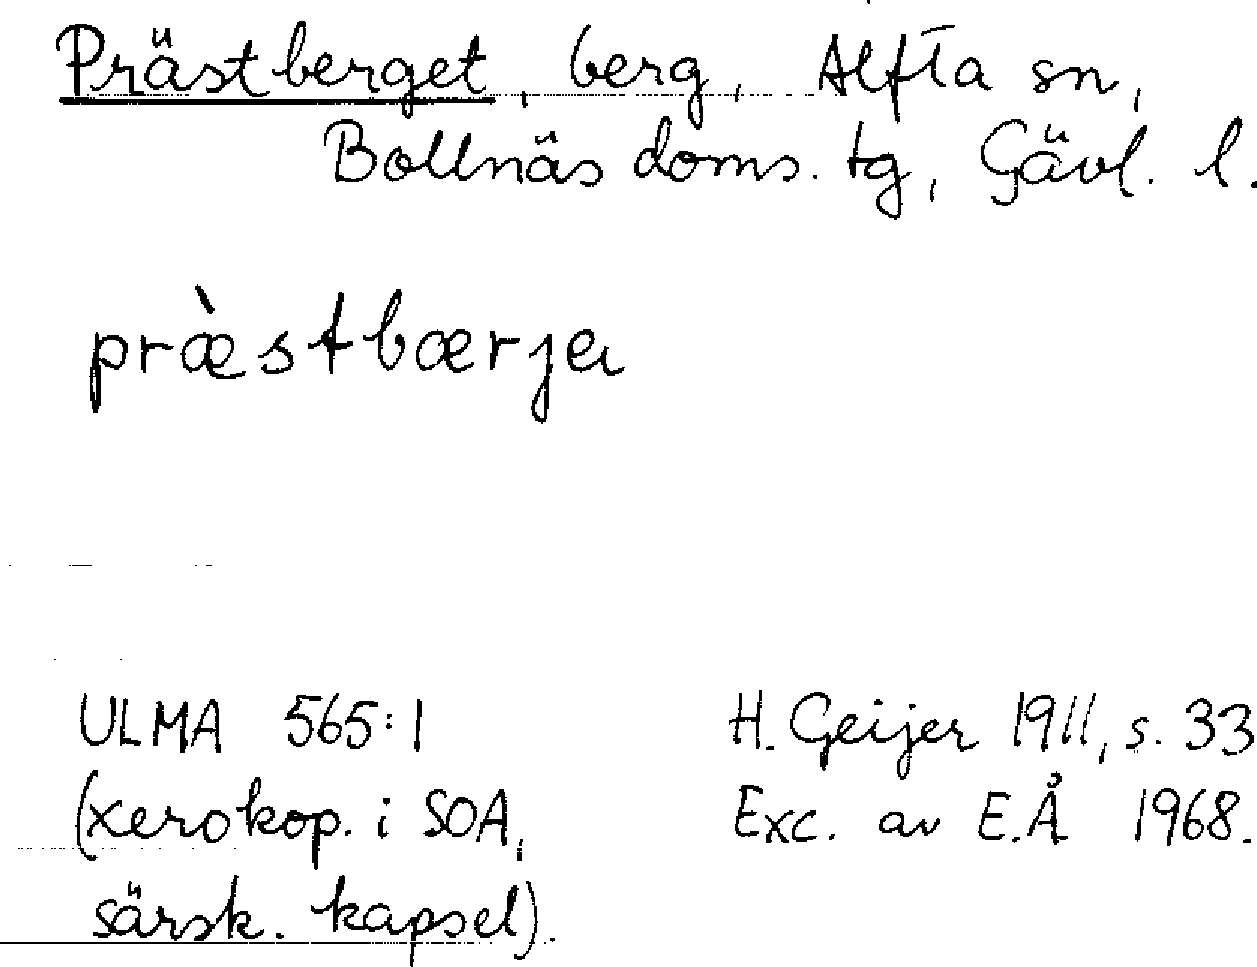 Prästberget, berg, Alfta sn,
Bollnäs doms. tg, Gävl. l.
præ̀stbærjeɩ
ULMA 565:1 H. Geijer 1911, s. 33
(xerokop. i SOA, Exc. av E.Å 1968.
särsk. kapsel).